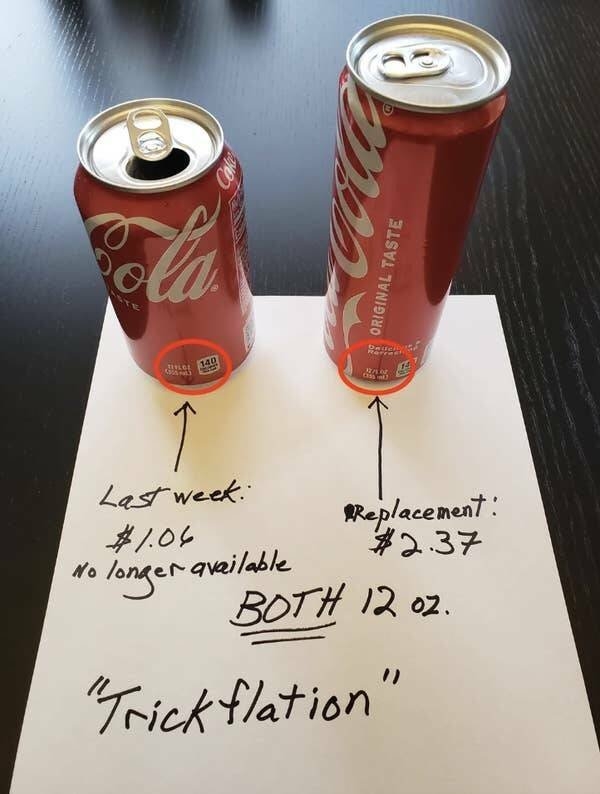 Cola
Coke
Cola
ORIGINAL TASTE
12 FL OZ
(355 mL)
140
12 FL OZ
(355 mL)
Last week:
$1.06
No longer available
Replacement:
$2.37
BOTH 12 oz.
"Trickflation"